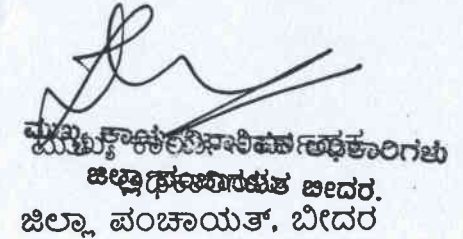 ಮುಖ್ಯ ಕಾರ್ಯನಿರ್ವಾಹಕ ಅಧಿಕಾರಿಗಳು
ಜಿಲ್ಲಾ ಬೀದರ.
ಜಿಲ್ಲಾ ಪಂಚಾಯತ್, ಬೀದರ